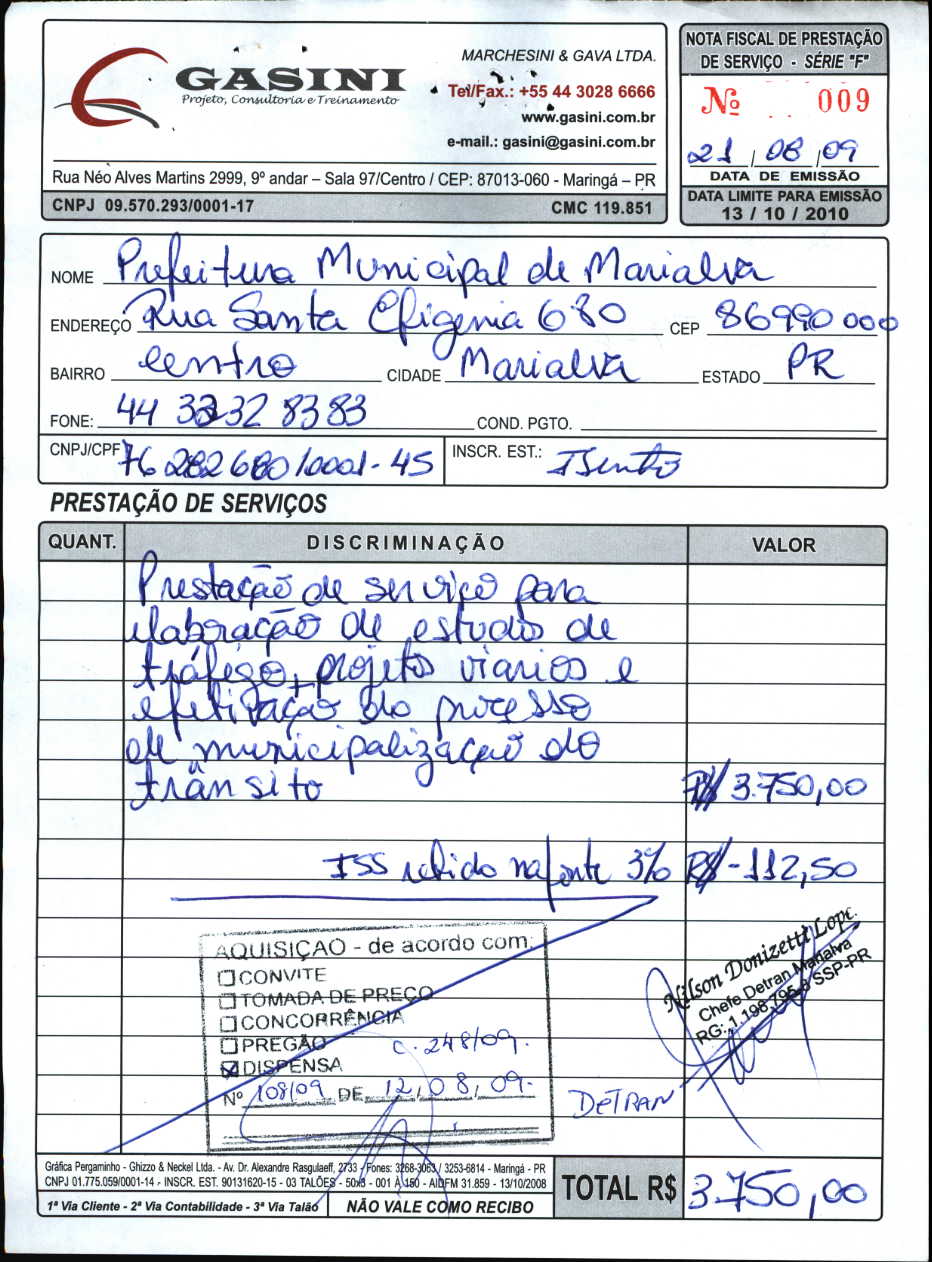 GASINI
Projeto, Consultoria e Treinamento
MARCHESINI & GAVA LTDA.
Tel/Fax.: +55 44 3028 6666
www.gasini.com.br
e-mail.: gasini@gasini.com.br
Rua Néo Alves Martins 2999, 9º andar – Sala 97/Centro / CEP: 87013-060 - Maringá – PR
CNPJ 09.570.293/0001-17 CMC 119.851
NOTA FISCAL DE PRESTAÇÃO
DE SERVIÇO - SÉRIE "F"
Nº 009
21 / 08 / 09
DATA DE EMISSÃO
DATA LIMITE PARA EMISSÃO
13 / 10 / 2010
NOME Prefeitura Municipal de Marialva
ENDEREÇO Rua Santa Efigenia 680 CEP 86990 000
BAIRRO centro CIDADE Marialva ESTADO PR
FONE: 44 3232 8383 COND. PGTO.
CNPJ/CPF 76 282 680/0001-45 INSCR. EST.: Isento
PRESTAÇÃO DE SERVIÇOS
QUANT. DISCRIMINAÇÃO VALOR
Prestação de serviço para
elaboração de estudo de
tráfego, projetos viarios e
efetivação do processo
de municipalização do
trânsito R$ 3.750,00
ISS retido na fonte 3% R$ -112,50
AQUISIÇAO - de acordo com:
CONVITE
TOMADA DE PREÇO
CONCORRÊNCIA
PREGÃO C. 248/09.
DISPENSA
Nº 108/09 DE 12, 08, 09.
Nilson Donizetti Lope.
Chefe Detran Marialva
RG: 1.198.795-8 SSP-PR
DETRAN
Gráfica Pergaminho - Ghizzo & Neckel Ltda. - Av. Dr. Alexandre Rasgulaeff, 2733 - Fones: 3268-3063 / 3253-6814 - Maringá - PR
CNPJ 01.775.059/0001-14 - INSCR. EST. 90131620-15 - 03 TALÕES - 50x3 - 001 À 150 - AIDFM 31.859 - 13/10/2008
1ª Via Cliente - 2ª Via Contabilidade - 3ª Via Talão NÃO VALE COMO RECIBO
TOTAL R$ 3.750,00